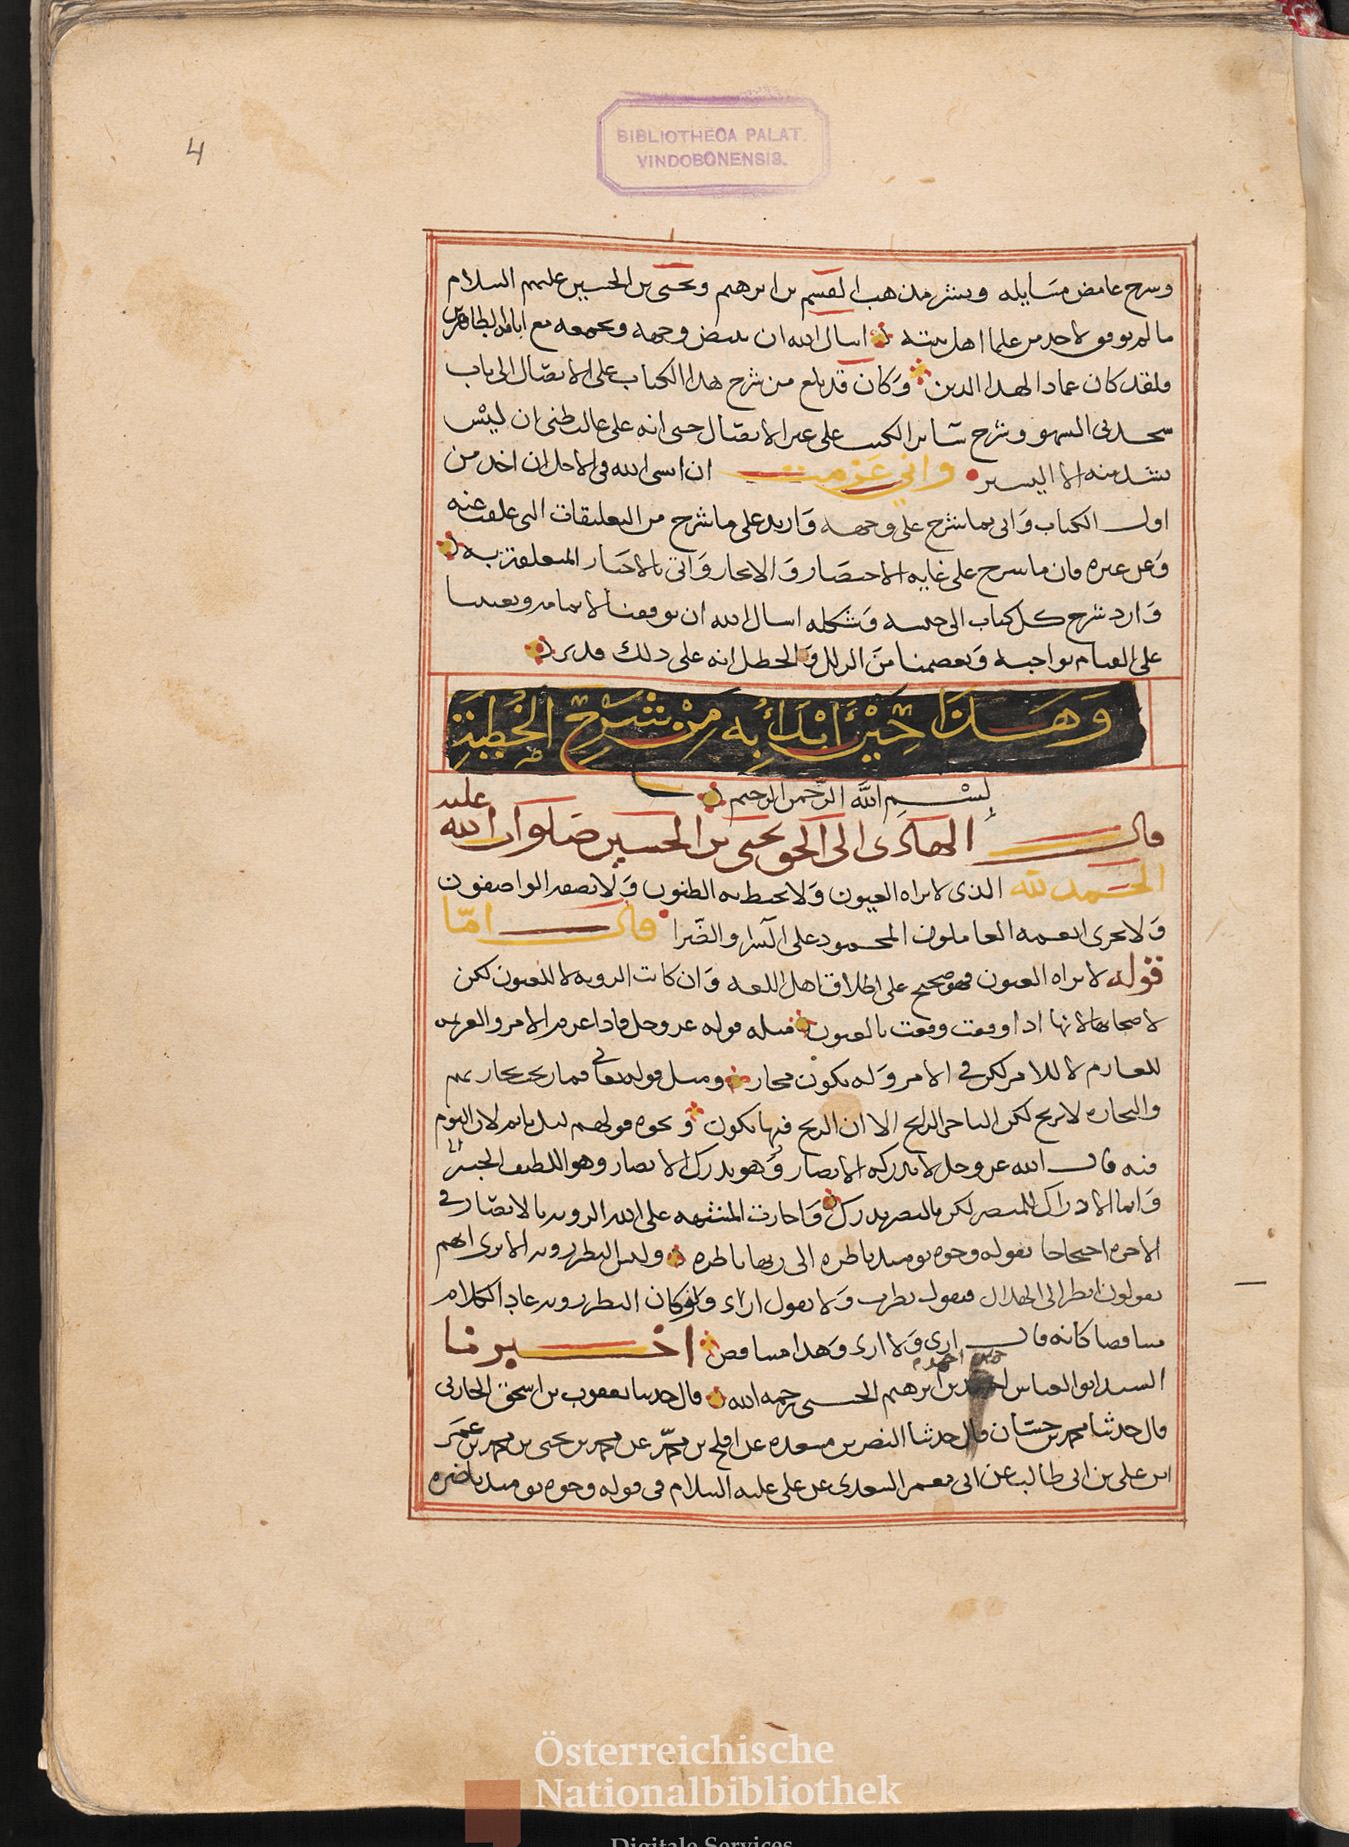 4
BIBLIOTHECA PALAT.
VINDOBONENSIS.
وشرح غامض مسايله وينشر مذهب القسم بن ابرهيم ويحيى بن الحسين عليهم السلام
ما لم يوفق لاحد من علما اهل بيته اسال الله ان يبيض وجهه ويجمعه مع ابايه الطاهرين
فلقد كان عمادا لهذا الدين وكان قد بلغ من شرح هذا الكتاب على الاتصال الى باب
سجدتي السهو وشرح ساير الكتب على غير الاتصال حتى انه على غالب ظني ان ليس
يشذ منه الا اليسير واني عزمت ان انسى الله في الاجل ان اخذ من
اول الكتاب واتي بما شرح على وجهه وازيد على ما شرح من التعليقات التي علقت عنه
وعن غيره فان ما شرح على غايه الاختصار والايجاز واتى بالاخبار المتعلقة به
وارد شرح كل كتاب الى جنسه وشكله اسال الله ان يوفقنا لاتمامه ويعيننا
على القيام بواجبه ويعصمنا من الزلل والخطل انه على ذلك قدير
وهذا حين ابتدائه من شرح الخطبة
بسم الله الرحمن الرحيم
قال الهادى الى الحق يحيى بن الحسين صلوات الله عليه
الحمد لله الذى لا تراه العيون ولا تحيط به الظنون ولا يصفه الواصفون
ولا يجزى انعمه العاملون المحمود على السرا والضرا قال امّا
قوله لا تراه العيون فهو صحيح على اطلاق اهل اللغه وان كانت الرويه لا للعيون لكن
لاصحابها لانها اذا وقعت وقعت بالعيون فمثله قوله عز وجل فاذا عزم الامر والعزم
للعازم لا للامر لكن في الامر وله يكون مجاز ومثل قوله تعالى فما ربحت تجارتهم
والتجاره لا تربح لكن التاجر الرابح الا ان الربح فيها يكون ونحوه قولهم ليل نايم لان النوم
فيه قال الله عز وجل لا تدركه الابصار وهو يدرك الابصار وهو اللطيف الخبير
وانما الادراك للمبصر لكن بالبصر يدرك واجازت المشبهه على الله الرويه بالابصار في
الاخره احتجاجا بقوله وجوه يوميذ ناظره الى ربها ناظره وليس النظر رويه الا ترى انهم
يقولون انظر الى الهلال فيقول نظرت ولا يقول اراه ولو كان النظر رويه عاد الكلام
متناقضا كانه قال ارى ولا ارى وهذا متناقض اخبرنا
السيد ابو العباس احمد بن ابرهيم الحسنى رحمه الله قال حدثنا يعقوب بن اسحق الحازنى
قال حدثنا محمد بن حسان قال حدثنا النصر بن مسعده عن افلح بن محمد عن محمد بن يحيى بن محمد بن عمر
ابن على بن ابى طالب عن ابى معمر السعدى عن على عليه السلام فى قوله وجوه يوميذ ناضره
Österreichische
Nationalbibliothek
Digitale Services